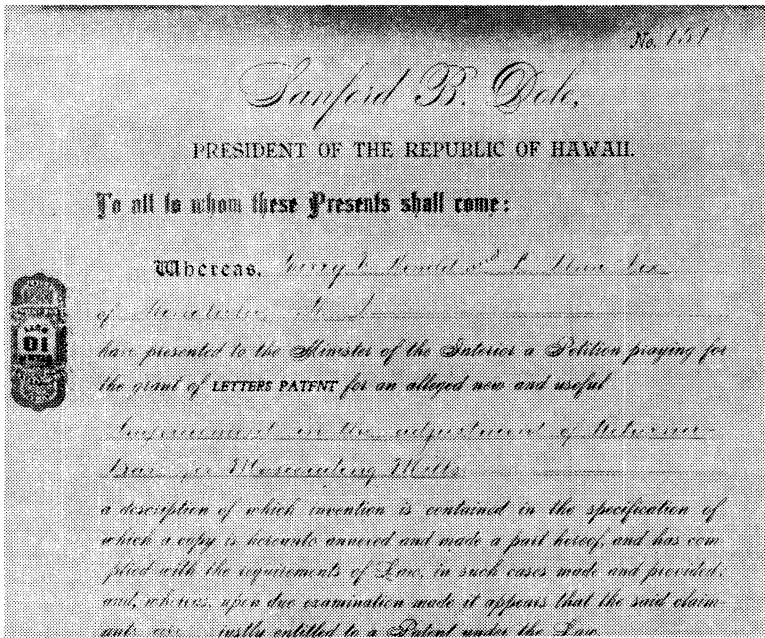 No. 151
Sanford B. Dole,
PRESIDENT OF THE REPUBLIC OF HAWAII.
To all to whom these Presents shall come:
Whereas,
of Honolulu
have presented to the Minister of the Interior a Petition praying for
the grant of LETTERS PATENT for an alleged new and useful
Improvement in the adjustment of Returner
Bars for Macerating Mills
a description of which invention is contained in the specification of
which a copy is hereunto annexed and made a part hereof, and has com
plied with the requirements of Law, in such cases made and provided,
and, whereas, upon due examination made it appears that the said claim-
ants are justly entitled to a Patent under the Law.
10